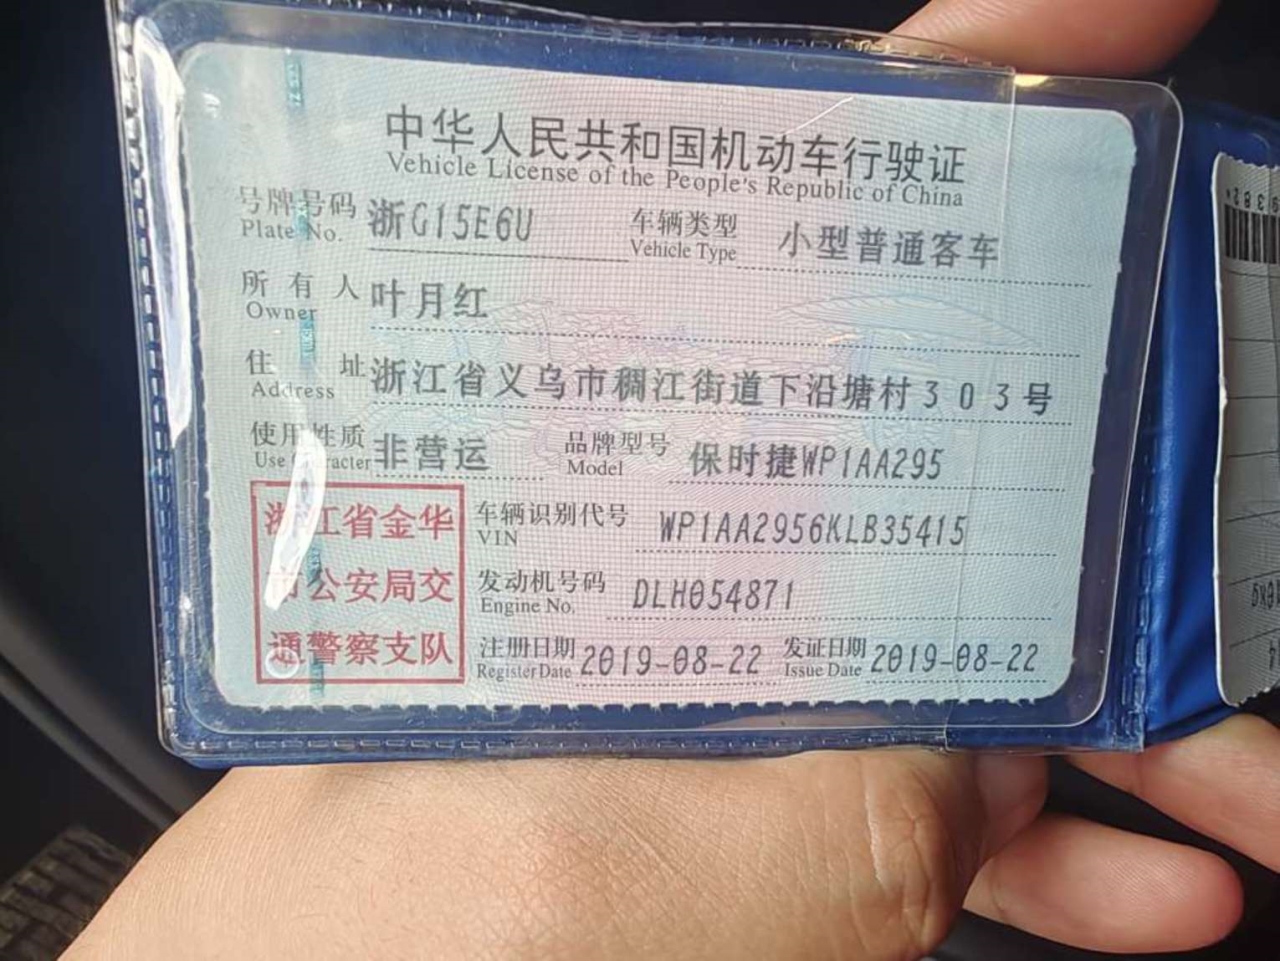 中华人民共和国机动车行驶证
Vehicle License of the People's Republic of China
号牌号码 浙G15E6U 车辆类型 小型普通客车
Plate No. Vehicle Type
所有人 叶月红
Owner
住址 浙江省义乌市稠江街道下沿塘村303号
Address
使用性质 非营运 品牌型号 保时捷WP1AA295
Use Character Model
浙江省金华
市公安局交
通警察支队
车辆识别代号 WP1AA2956KLB35415
VIN
发动机号码 DLH054871
Engine No.
注册日期 2019-08-22 发证日期 2019-08-22
Register Date Issue Date